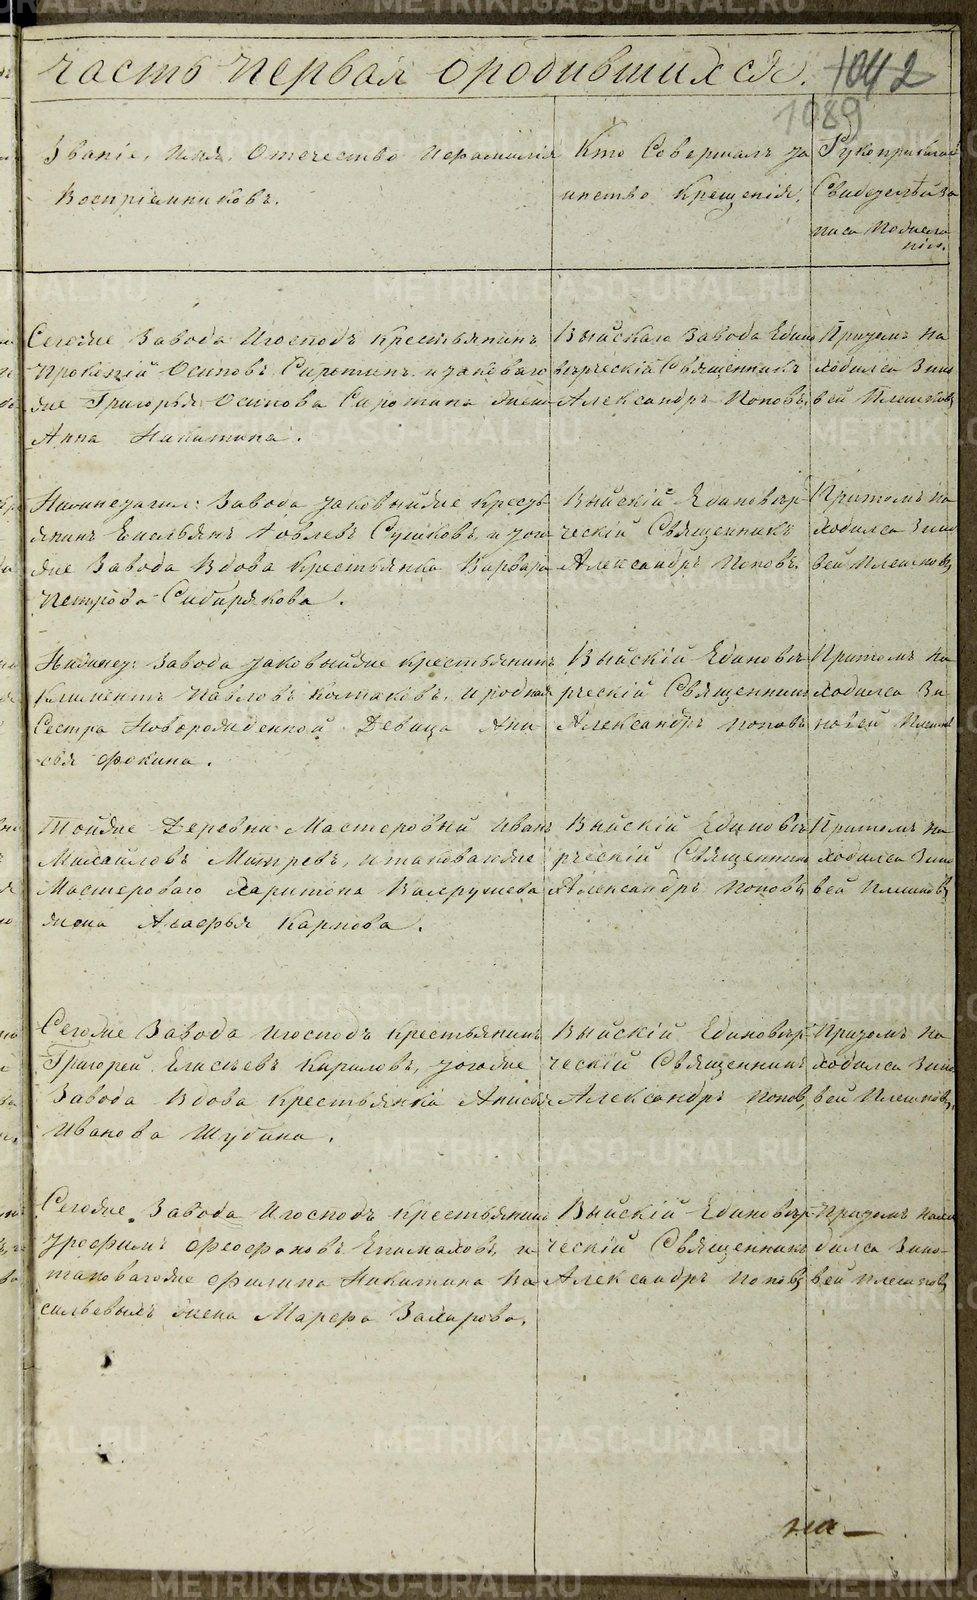 часть первая о родившихся.
1042
1089
Званіе, имя, Отечество ифамилія
Воспріемниковъ.
Кто Совершалъ та
инство Крещенія,
Рукоприклад
Свидетелей за
писи По
Сегоже Завода Игосподъ крестьянинъ
Прокопій Осиповъ Сиротинъ и таковаго
же Григорья Осипова Сиротина жена
Анна Никитина.
Выйскаго Завода Едино
верческій Священникъ
Александръ Поповъ,
Притомъ На
ходился Зино
вей Плешковъ
Нижнетагил: Завода таковыйже кресть
янинъ Емельянъ Сушковъ, и того
же Завода Вдова Крестьянка Варвара
Петрова Сибирякова.
Выйскій Единовѣр
ческій Священникъ
Александръ Поповъ.
Притомъ На
ходился Зино
вей Плешковъ
Нижнет: Завода таковыйже крестьянинъ
Климентъ Павловъ и родная
Сестра Новорожденной Девица Ани
сья Фокина.
Выйскій Единовѣ
рческій Священникъ
Александръ Поповъ
Притомъ На
ходился Зи
новей Плешк
Тойже Деревни Мастеровый Иванъ
Михайловъ и таковаго же
Мастероваго Харитона
жена Агафья Карпова.
Выйскій Единовѣ
рческій Священникъ
Александръ Поповъ
Притомъ На
ходился Зино
вей Плешковъ
Сегоже Завода Игосподъ крестьянинъ
Григорей Елисѣевъ Кириловъ, тогоже
Завода Вдова Крестьянка Анисья
Иванова Шубина.
Выйскій Единовѣр
ческій Священникъ
Александръ Поповъ,
Притомъ На
ходился Зино
вей Плешковъ,
Сегоже Завода Игосподъ крестьянинъ
Трофимъ Феофановъ и
таковагоже Филипа Никитина Ва
сильевымъ жена Марфа Захарова.
Выйскій Единовѣр
ческій Священникъ
Александръ Поповъ
Притомъ нахо
дился Зино-
вей Плешковъ
METRIKI.GASO-URAL.RU